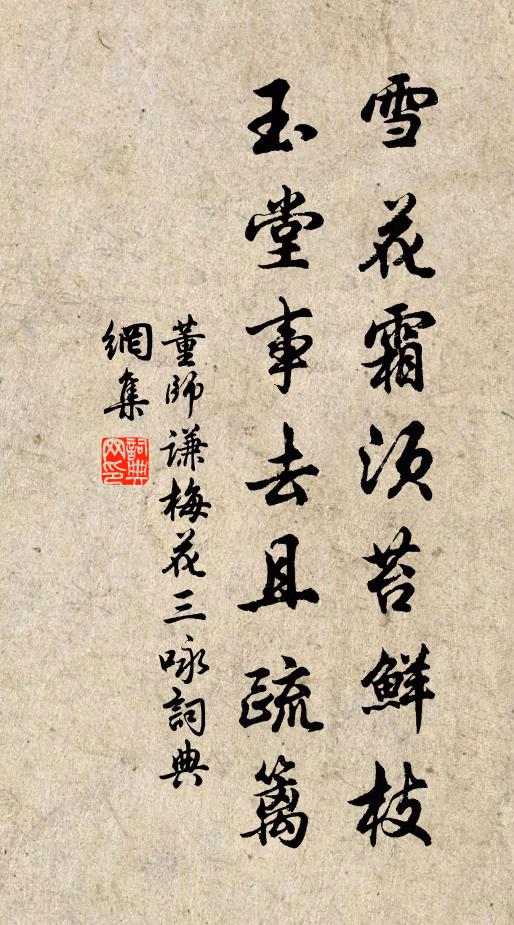 雪花霜须苔鲜枝
玉堂事去且疏篱
董师谦梅花三咏词典
網集
詞典網印